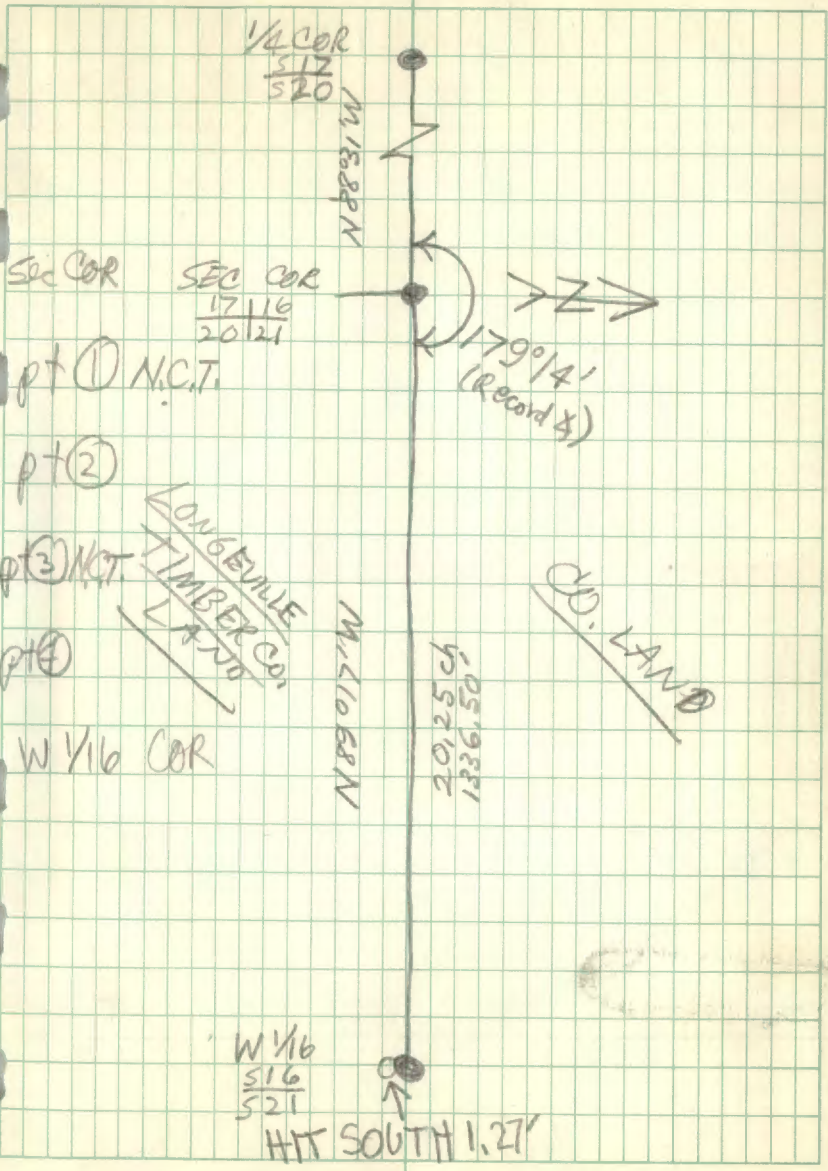 1/4 COR
S17
S20
N88°31'W
Sec COR
SEC COR
17 | 16
20 | 21
N
179°14'
(Record ∡)
pt ① N.C.T.
pt ②
pt ③ N.C.T.
pt ④
LONGEVILLE
TIMBER CO.
LAND
CO. LAND
N89°17'W
20.25 ch
1336.50'
W 1/16 COR
W 1/16
S16
S21
HIT SOUTH 1.27'